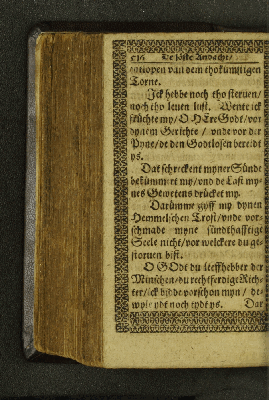 De söste Andacht/
entlopen van dem thokumstigen
Torne.
Ick hebbe noch tho steruen/
noch tho leuen lust. Wente ick
früchte my/ O HEre Godt/ vor
dynem Gerichte / vnde vor der
Pyne/ de den Godtlosen beredt
ys.
Dat schreckent myner Sünde
bekümmert my/ vnd de Last my-
nes Gewetens drücket my.
Darümme gyff my dynen
Hemmelschen Trost/ vnde vor-
schmade myne sündthafftige
Seele nicht/ vor welckere du ge-
storuen bist.
O GOdt du leeffhebber der
Minschen/ du rechtferdige Rich-
ter/ ick bidde vorschon myn / de-
wyle ydt noch tydt ys. Dar